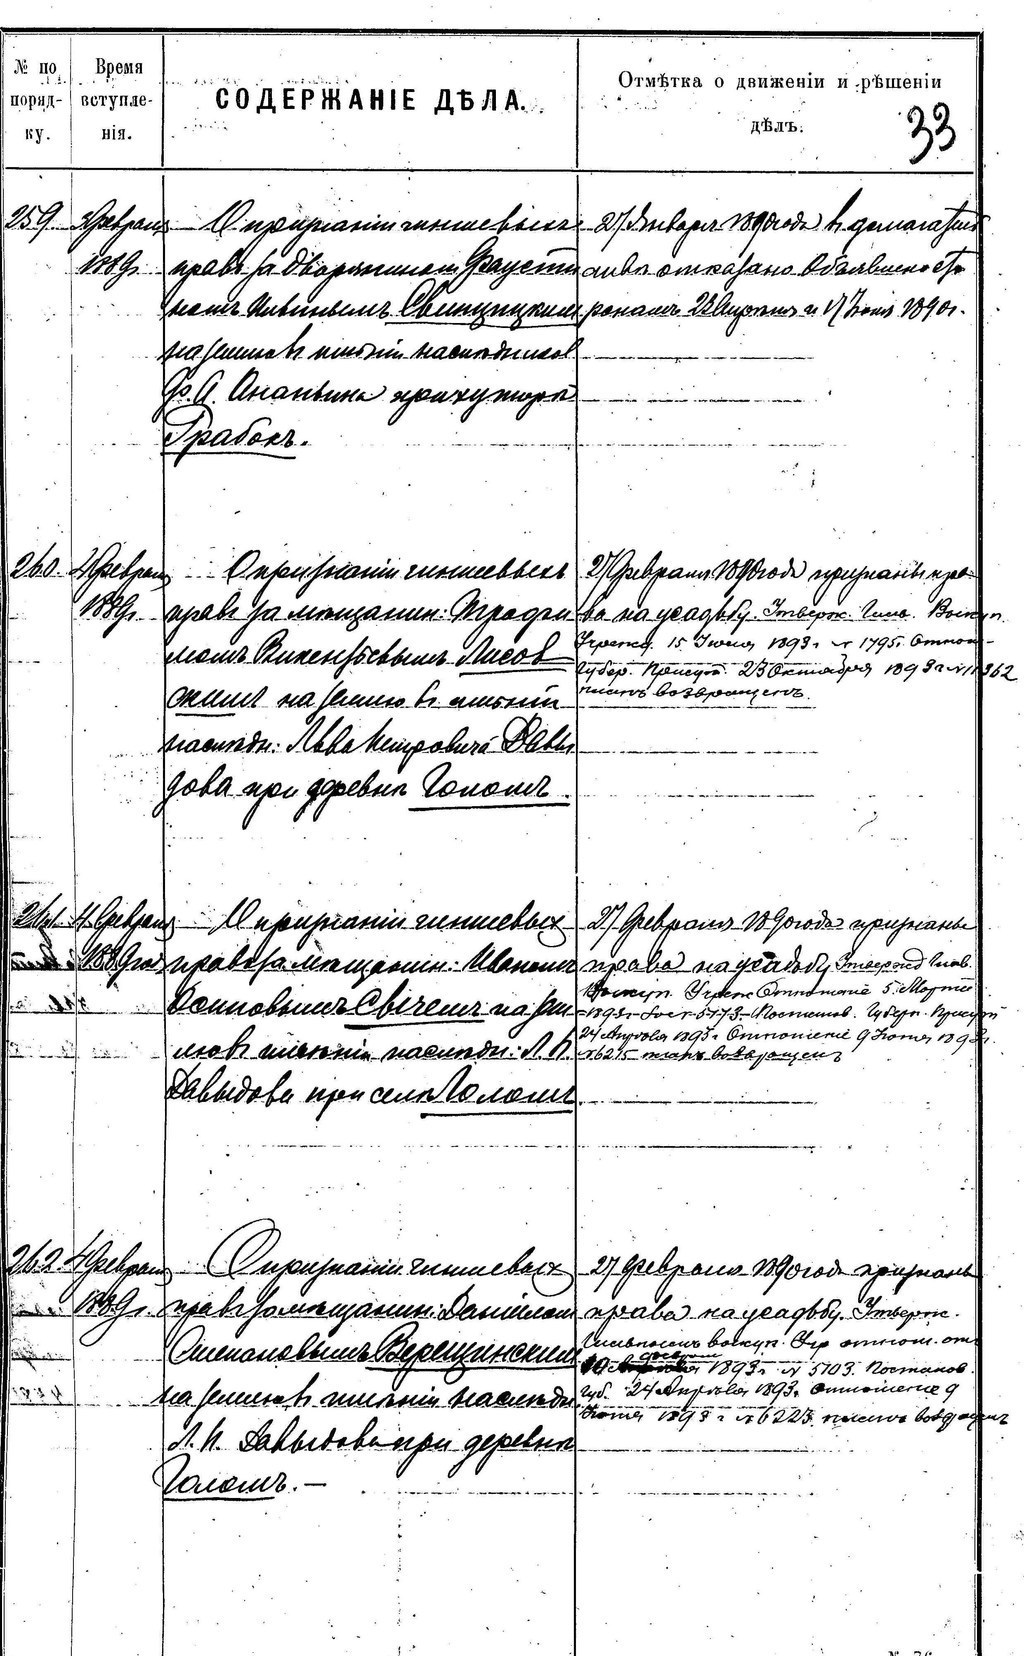 № по порядку.
Время вступленія.
СОДЕРЖАНІЕ ДѢЛА.
Отмѣтка о движеніи и рѣшеніи
дѣлъ.
33
259.
Февраля
1889г.
О признаніи чиншевыхъ
правъ за дворяниномъ Фаусти
номъ
на землю въ имѣніи наслѣдниковъ
Ф. А. Ананьина при хуторѣ
Грабокъ.
27 Января 1890 года въ домагатель
ствѣ отказано. Объявлено сто
ронамъ 23 Апрѣля и 17 Іюня 1890г.
260.
4 Февраля
1889г.
О признаніи чиншевыхъ
правъ за мѣщанин:
Викентьевымъ Лисов
скимъ на землю въ имѣніи
наслѣдн: Льва Петровича Давы
дова при деревнѣ
27 Февраля 1890 года признаны пра
ва на усадьбу. Утвержд.
15 Іюня 1893 г. № 1795.
Губер. Присут. 23 Октября 1893 г. № 11362
возвращенъ.
261.
4 Февраля
1889 года
О признаніи чиншевыхъ
правъ за мѣщанин: Иваномъ
Осиповымъ на зем
лю въ имѣніи наслѣдн: Л. П.
Давыдова при селѣ
27 Февраля 1890 года признаны
права на усадьбу. Утвержд. Глав.
Выкуп. Учреж. Отношеніе 5 Марта
1893 г. за № 5173. Постанов. Губерн. Присут.
24 Апрѣля 1893 г. Отношеніе 9 Іюня 1893 г.
№ 6215 возвращенъ
262.
4 Февраля
1889г.
О признаніи чиншевыхъ
правъ за мѣщанин: Даніиломъ
Степановымъ Верещинскимъ
на землю въ имѣніи наслѣдн:
Л. П. Давыдова при деревнѣ
27 Февраля 1890 года признаны
права на усадьбу. Утверж.
выкуп. Учр. отнош. от
1893 г. № 5103. Постанов.
Губ. 24 Апрѣля 1893 г. Отношеніе 9
Іюня 1893 г. № 6223